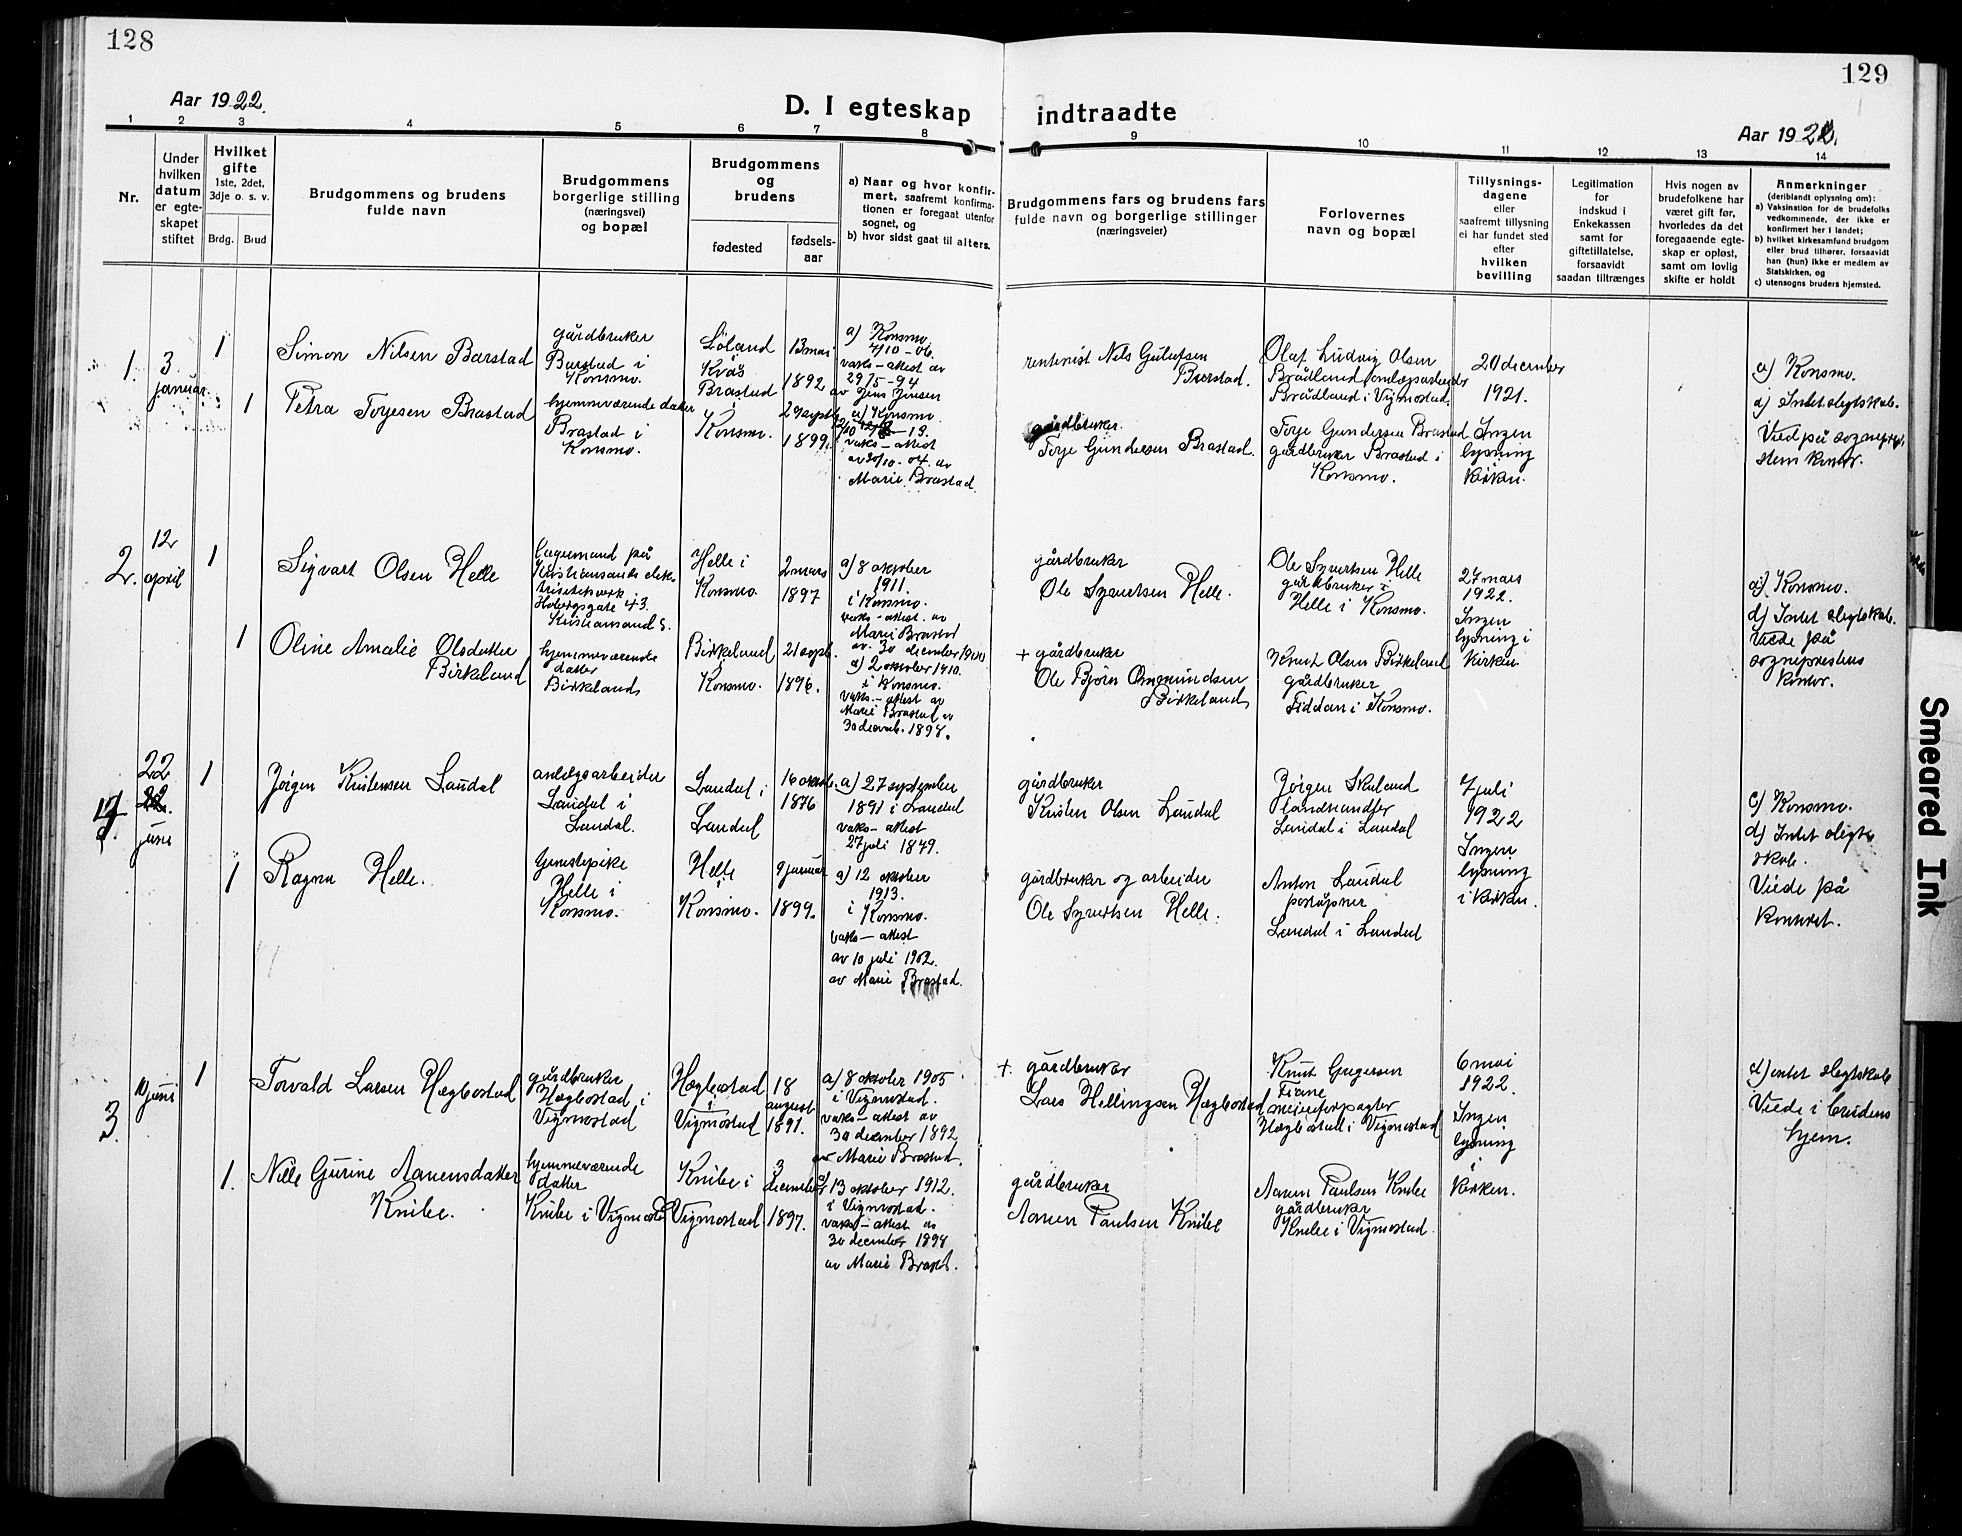 128
Aar 1922.
D. I egteskap
1 2 3 4 5 6 7 8
Nr.
Under
hvilken
datum
er egte-
skapet
stiftet
Hvilket
gifte
1ste, 2det,
3dje o. s. v.
Brdg. Brud
Brudgommens og brudens
fulde navn
Brudgommens
borgerlige stilling
(næringsvei)
og bopæl
Brudgommens
og
brudens
fødested
fødsels-
aar
a) Naar og hvor konfir-
mert, saafremt konfirma-
tionen er foregaat utenfor
sognet, og
b) hvor sidst gaat til alters.
1.
3
januar
1
Simon Nilsen Barstad
gårdbruker
Barstad i
Konsmo.
Løland
Kvås
13 mai
1892
a) Konsmo
4/10-06.
vaks-attest av
29/5-94
av Jens Jensen
1
Petra Torjesen Brastad
hjemmeværende datter
Brastad i
Konsmo.
Brastad
Konsmo.
1899.
a) Konsmo
vaks-attest
av 30/10-04. av
Marie Brastad.
2.
12
april
1
Sigvart Olsen Helle
lagermand på
Kristiansands elek-
Holbergsgate 43.
Kristiansand S.
Helle i
Konsmo.
2 mars
1897
a) 8 oktober
1911.
i Konsmo.
vaks-attest. av
Marie Brastad
av 30 december
1
Oline Amalie Olsdatter
Birkeland
hjemmeværende
datter
Birkeland
Birkeland
Konsmo.
21 sept.
1896.
a) 2 oktober 1910.
i Konsmo.
vaks-attest av
Marie Brastad av
30 decemb. 1897.
4.
22
juni
1
Jørgen Kristensen Laudal
anlegsarbeider
Laudal i
Laudal.
Laudal i
Laudal
16 oktob.
1876
a) 27 september
1891 i Laudal
vaks-attest
27 juli 1879.
1
Ragna Helle.
tjenestepike
Helle i
Konsmo.
Helle
i
Konsmo.
9 januar
1899.
a) 12 oktober
1913.
i Konsmo.
vaks-attest
av 10 juli 1902.
av Marie Brastad.
3
10 juni
1
Torvald Larsen Hægbostad
gårdbruker
Hægbostad i
Vigmostad
Hægbostad
i
Vigmostad
18
august
1891.
a) 8 oktober 1905
i Vigmostad.
vaks-attest av
30 december 1892
av Marie Brastad.
1.
Nille Gurine Aanensdatter
Knibe.
hjemmeværende
datter
Knibe i Vigmostad
Knibe i
Vigmostad
3
december
1897.
13 oktober 1912.
i Vigmostad.
vaks-attest av
30 december 1898
av Marie Brastad.
129
indtraadte
Aar 1922.
9 10 11 12 13 14
Brudgommens fars og brudens fars
fulde navn og borgerlige stillinger
(næringsveier)
Forlovernes
navn og bopæl
Tillysnings-
dagene
eller
saafremt tillysning
ei har fundet sted
efter
hvilken
bevilling
Legitimation
for
indskud i
Enkekassen
samt for
giftetillatelse,
forsaavidt
saadan tiltrænges
Hvis nogen av
brudefolkene har
været gift før,
hvorledes da det
foregaaende egte-
skap er opløst,
samt om lovlig
skifte er holdt
Anmerkninger
(deriblandt oplysning om):
a) Vaksination for de brudefolks
vedkommende, der ikke er
konfirmert her i landet;
b) hvilket kirkesamfund brudgom
eller brud tilhører, forsaavidt
han (hun) ikke er medlem av
Statskirken, og
c) utensogns bruders hjemsted.
rentenist Nils Gustafsen
Barstad.
Olaf Ludvig Olsen
Brådland
Brådland i Vigmostad.
20 december
1921.
Konsmo.
Intet slegtskab.
gårdbruker.
Torje Gundersen Brastad.
Torje Gundersen Brastad
gårdbruker Brastad i
Konsmo.
Ingen
lysning
kirken.
Vied på sogneprest
kontor.
gårdbruker
Ole Syvertsen Helle.
Ole Syvertsen Helle
gårdbruker i
Helle i Konsmo.
27 mars
1922.
Ingen
lysning i
kirken
Konsmo.
d) Intet slegtskab.
Viede på
sogneprestens
kontor.
+ gårdbruker
Ole Bjørn Omundsen
Birkeland
Knut Olsen Birkeland
gårdbruker
Fiddan i Konsmo.
gårdbruker
Kristen Olsen Laudal
Jørgen Skuland
landhandler
Laudal i Laudal
7 juli
1922
Ingen
lysning
i kirken.
c) Konsmo.
d) Intet slegt-
skab.
Viede på
kontoret.
gårdbruker og arbeider
Ole Syvertsen Helle.
Anton Laudal
poståpner
Laudal i Laudal
+ gårdbruker
Lars Hellingsen Hægbostad
Knut Gregersen
Fiane
meieriforpagter
Hægbostad i Vigmostad
6 mai
1922.
Ingen
lysning
i
kirken.
d) intet slegtskab
Viede i brudens
hjem.
gårdbruker
Aanen Paulsen Knibe
Aanen Paulsen Knibe
gårdbruker
Knibe i Vigmostad.
Smeared Ink